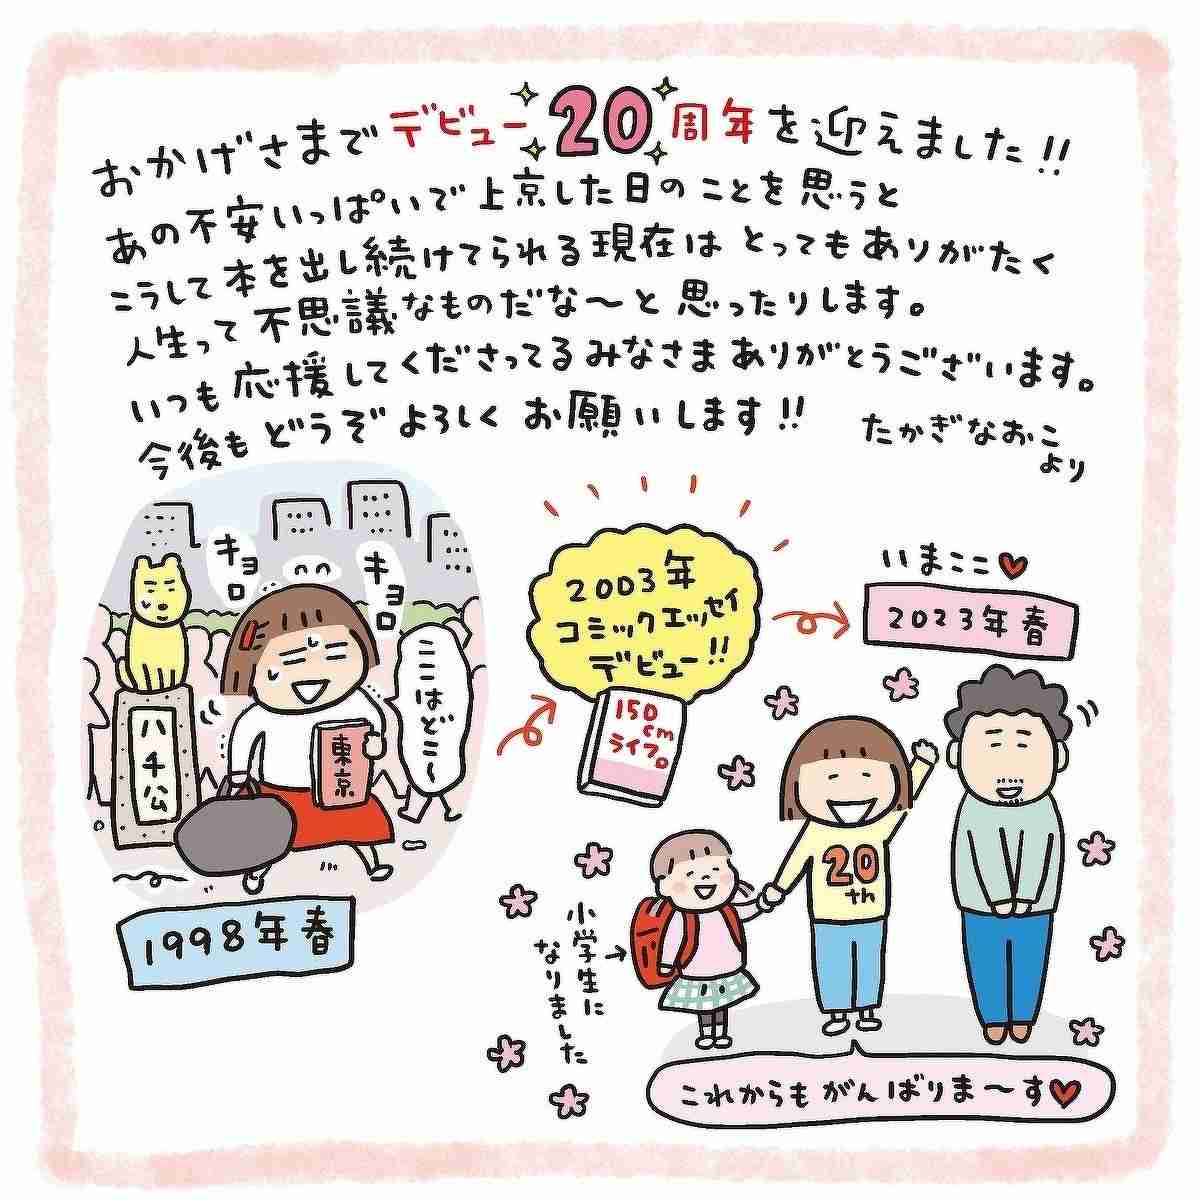 おかげさまでデビュー20周年を迎えました!!
あの不安いっぱいで上京した日のことを思うと
こうして本を出し続けてられる現在はとってもありがたく
人生って不思議なものだな〜と思ったりします。
いつも応援してくださってるみなさまありがとうございます。
今後もどうぞよろしくお願いします!!
たかぎなおこ
より
キョロ
キョロ
ここはどこ〜
ハチ公
東京
1998年春
2003年
コミックエッセイ
デビュー!!
150
cm
ライフ。
いまここ♥
2023年春
20
th
小学生に
なりました
→
これからもがんばりま〜す♥